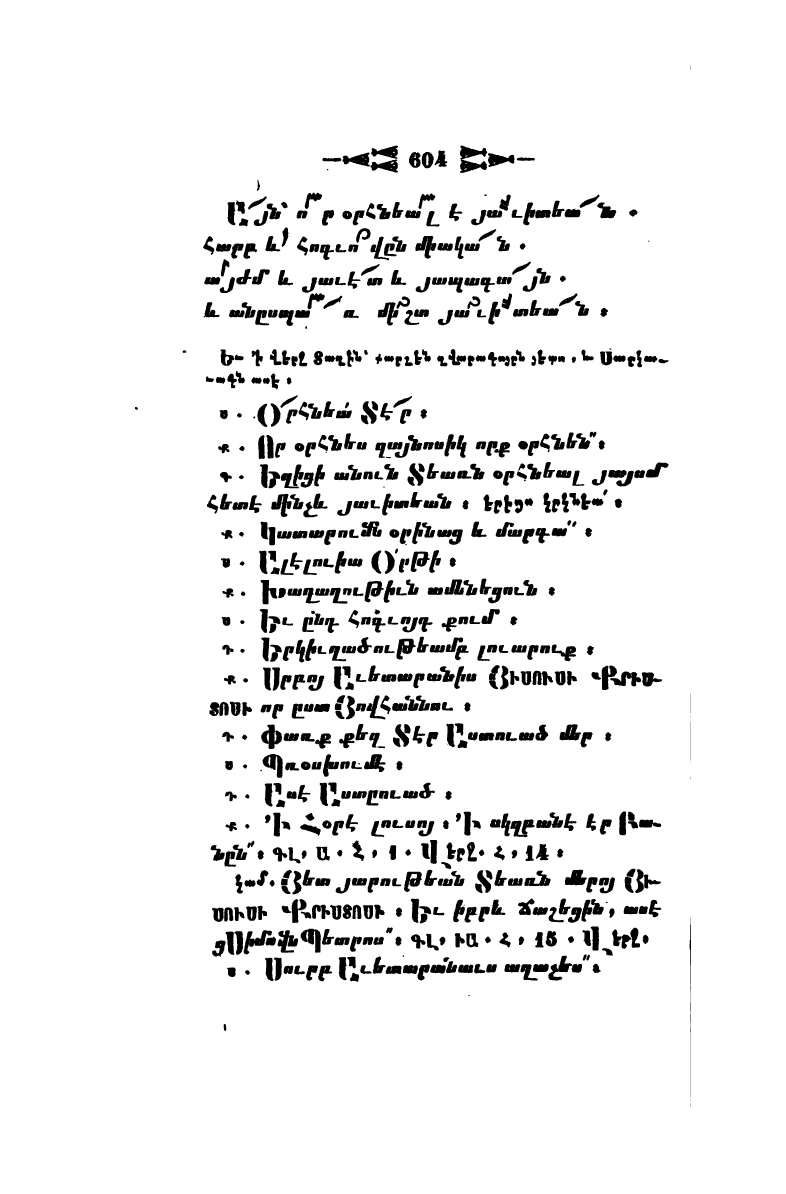 604
Այն՝ ո՞ր օրհնեա՞լ է յաւիտեան .
Հարբ և Հոգւովըն միական .
այժմ և յաւէտ և յապագայն .
և անըսպառ միշտ յաւիտեան :
Եւ ՚ի վերջ Տաղին՝ դարձեն զվարագոյրն յետս , և Սարկա–
–ւագն ասէ :
Ս . Օրհնեա Տէր :
Ք . Որ օրհնես զայնոսիկ որք օրհնեն" :
Դ . Եղիցի անուն Տեառն օրհնեալ յայսմ
հետէ մինչև յաւիտեան : երիցս կրկնէա՛ :
Ք . Կատարումն օրինաց և մարգա" :
Ս . Ալէլուիա Օրթի :
Ք . Խաղաղութիւն ամենեցուն :
Ս . Եւ ընդ հոգւոյդ քում :
Դ . Երկիւղածութեամբ լուարուք :
Ք . Սրբոյ Աւետարանիս ՅԻՍՈՒՍԻ ՔՐԻՍ–
ՏՈՍԻ որ ըստ Յովհաննու :
Դ . Փառք քեզ Տէր Աստուած մեր :
Ս . Պռօսխումէ :
Դ . Ասէ Աստըուած :
Ք . ՚Ի Հօրէ լուսոյ : ՚Ի սկզբանէ էր Բա–
նըն" : ԳԼ, Ա . Հ , 1 . Վերջ. Հ , 14 :
կամ. Յետ յարութեան Տեառն մերոյ ՅԻ–
ՍՈՒՍԻ ՔՐԻՍՏՈՍԻ : Եւ իբրև ճաշեցին, ասէ
ցՍիմովն Պետրոս" : ԳԼ, ԻԱ . Հ , 15 . Վերջ.
Ս . Սուրբ Աւետարանաւս աղաչես" :